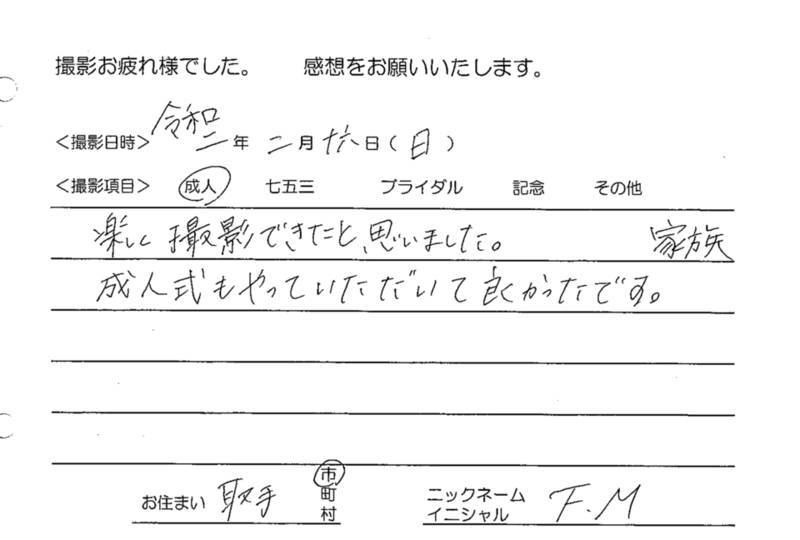 撮影お疲れ様でした。 感想をお願いいたします。
<撮影日時> 令和二年 二月 十六日(日)
<撮影項目> 成人 七五三 ブライダル 記念 その他
楽しく撮影できたと、思いました。 家族
成人式もやっていただいて良かったです。
お住まい 取手 市 町 村
ニックネーム イニシャル F.M